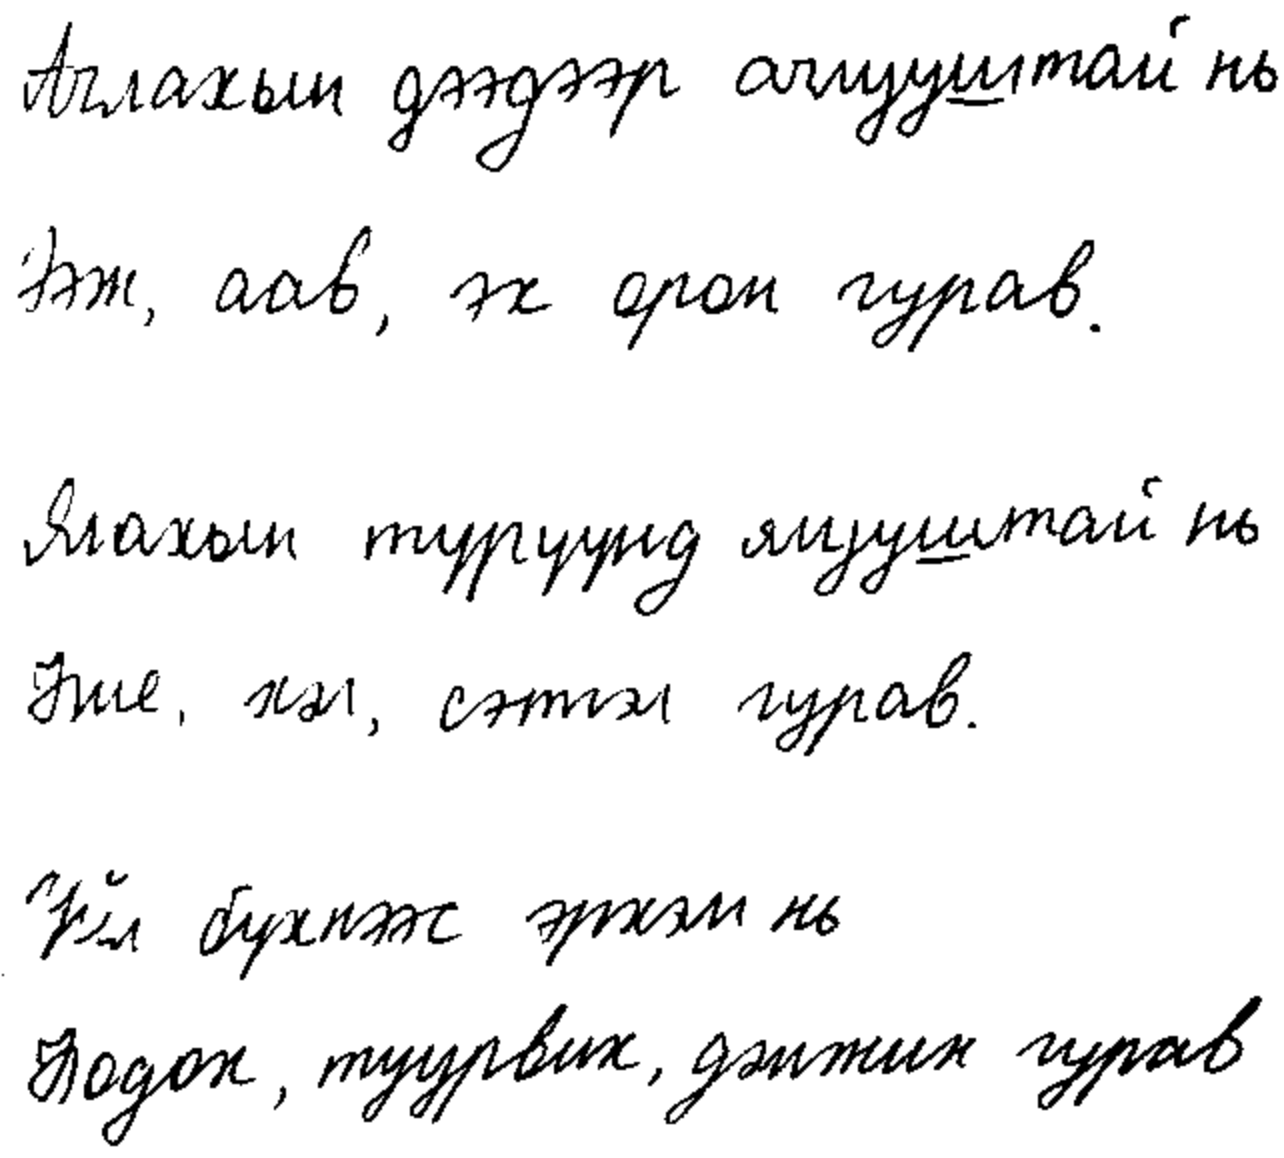 Ачлахын дээдээр ачлууштай нь
Ээж, аав, эх орон гурав.
Ялахын түрүүнд ялууштай нь
Бие, хэл, сэтгэл гурав.
Үйл бүхнээс эрхэм нь
Бодох, туурвих, дэмжих гурав